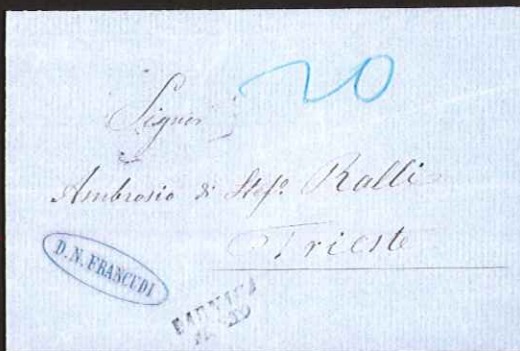 20
Signor
Ambrosio di Stefo. Ralli
Trieste
D. N. FRANCUDI